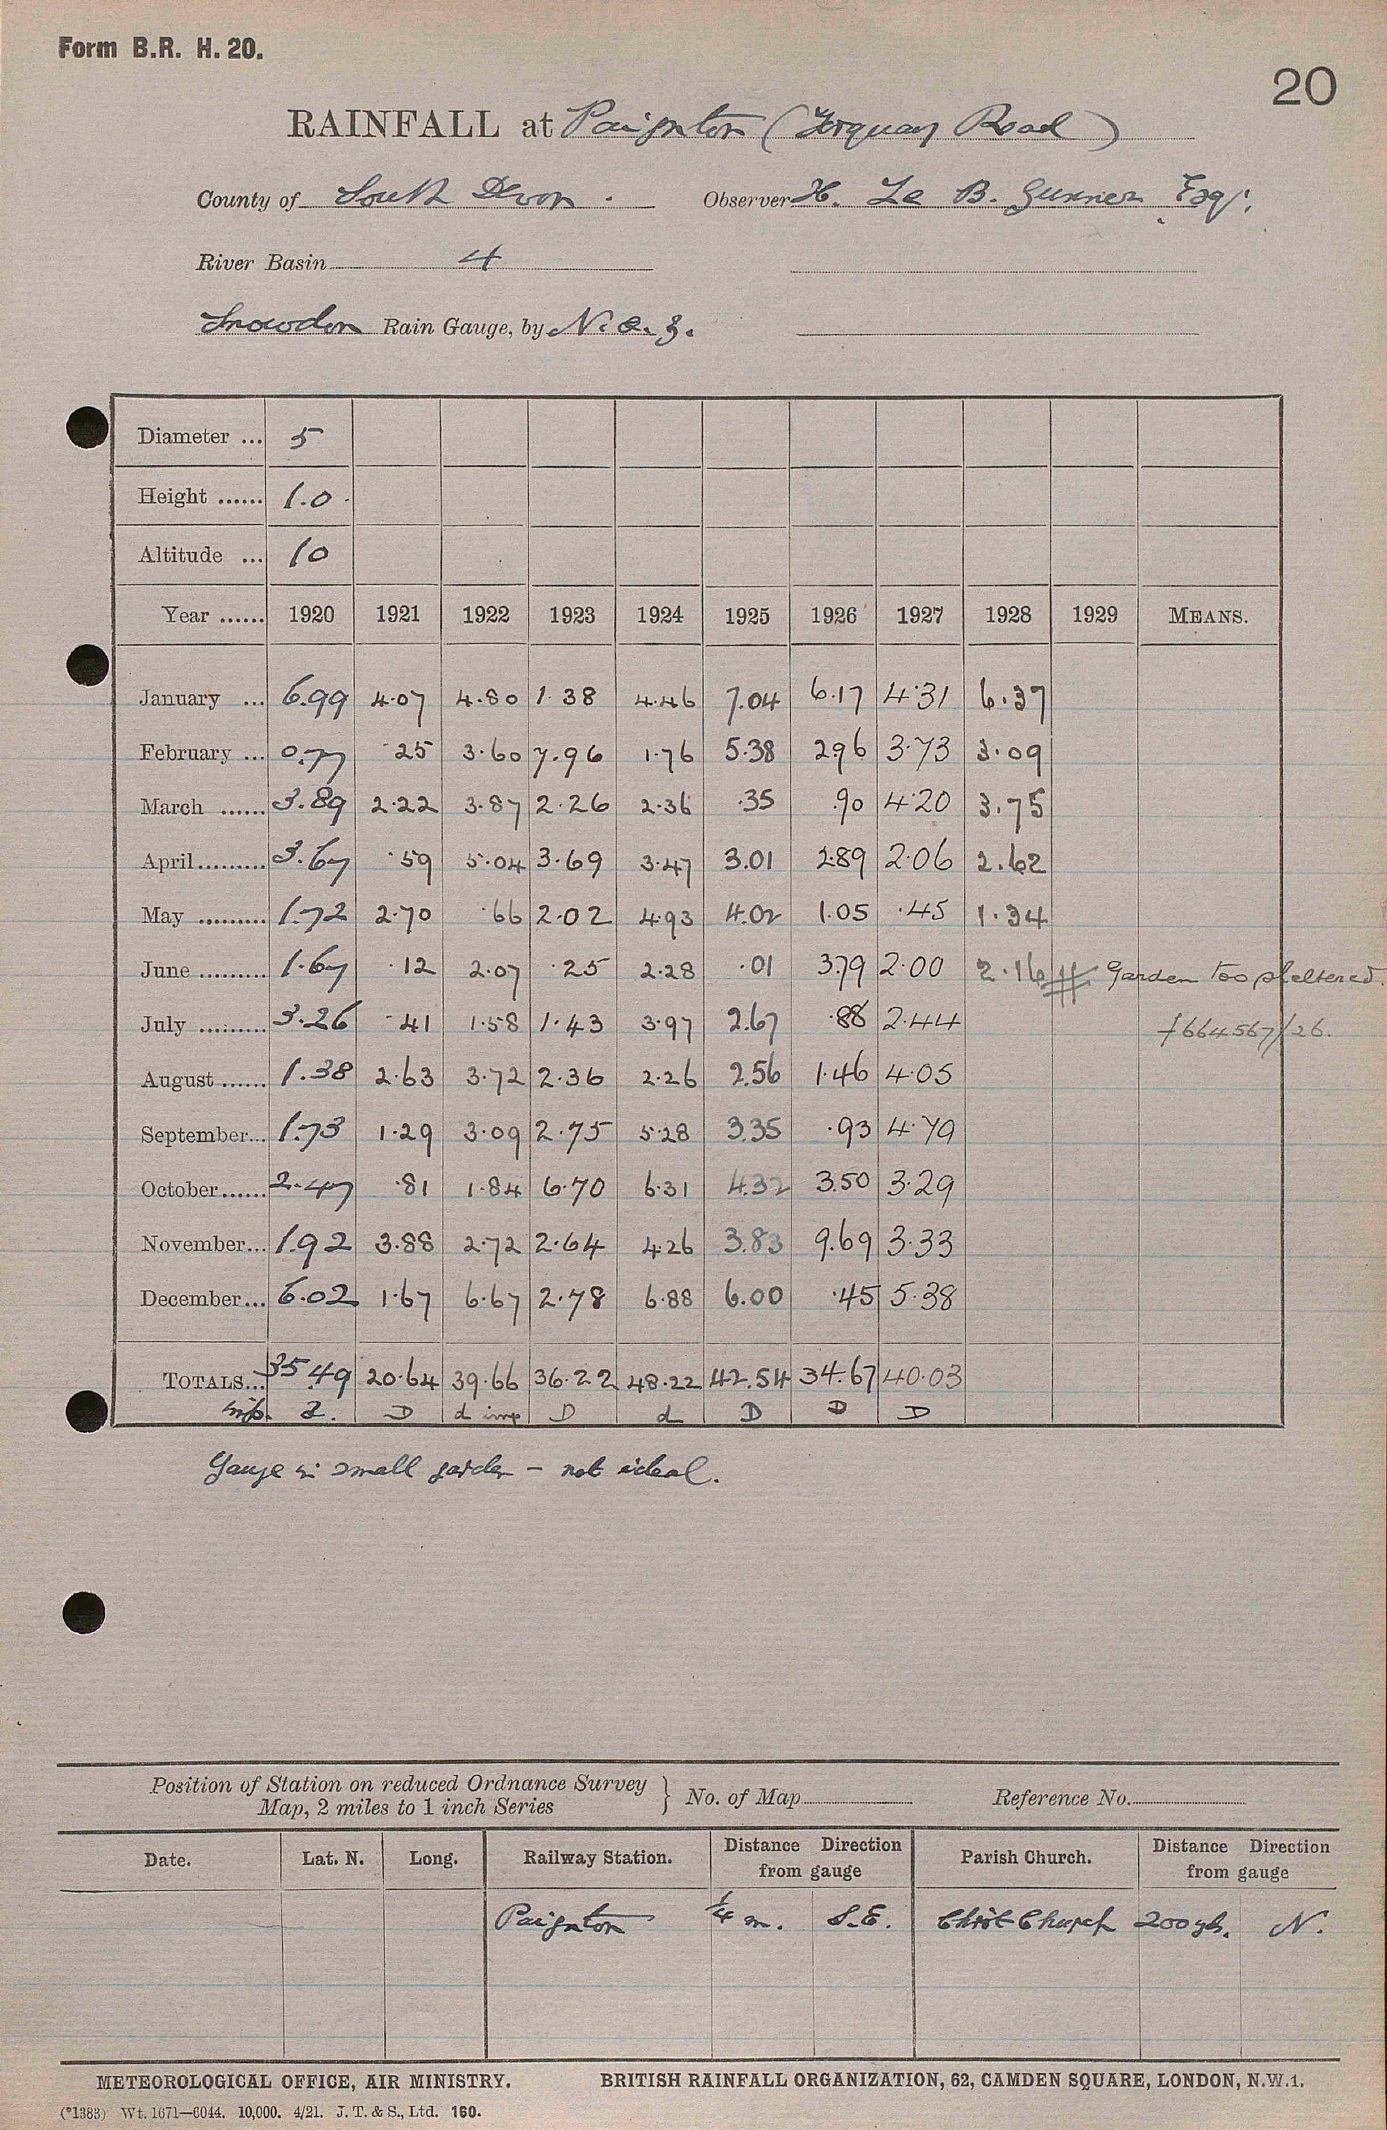 Form B.R. H. 20.
20
RAINFALL at Paignton (Torquay Road)
County of South Devon. Observer H. Le B. Gunner Esq.
River Basin 4
Snowdon Rain Gauge, by N. & Z.
Diameter ... 5
Height ...... 1.0
Altitude ... 10
Year ...... 1920 1921 1922 1923 1924 1925 1926 1927 1928 1929 MEANS.
January ... 6.99 4.07 4.80 1.38 4.46 7.04 6.17 4.31 6.37
February ... 0.77 .25 3.60 7.96 1.76 5.38 2.96 3.73 3.09
March ...... 3.89 2.22 3.87 2.26 2.36 .35 .90 4.20 3.75
April ......... 3.67 .59 5.04 3.69 3.47 3.01 2.89 2.06 2.62
May ......... 1.72 2.70 .66 2.02 4.93 4.02 1.05 .45 1.34
June ......... 1.67 .12 2.07 .25 2.28 .01 3.79 2.00 2.16 Garden too sheltered.
July ......... 3.26 .41 1.58 1.43 3.97 2.67 .88 2.44 f664567/26.
August ...... 1.38 2.63 3.72 2.36 2.26 2.56 1.46 4.05
September... 1.73 1.29 3.09 2.75 5.28 3.35 .93 4.79
October...... 2.47 .81 1.84 6.70 6.31 4.32 3.50 3.29
November... 1.92 3.88 2.72 2.64 4.26 3.83 9.69 3.33
December... 6.02 1.67 6.67 2.78 6.88 6.00 .45 5.38
TOTALS... 35.49 20.64 39.66 36.22 48.22 42.54 34.67 40.03
imp. d. D d imp D d D D D
Gauge in small garden – not ideal.
Position of Station on reduced Ordnance Survey Map, 2 miles to 1 inch Series } No. of Map Reference No.
Date. Lat. N. Long. Railway Station. Distance Direction from gauge Parish Church. Distance Direction from gauge
Paignton 1/4 m. S.E. Christ Church 200 yds. N.
METEOROLOGICAL OFFICE, AIR MINISTRY. BRITISH RAINFALL ORGANIZATION, 62, CAMDEN SQUARE, LONDON, N.W.1.
(*1383) Wt. 1671—6044. 10,000. 4/21. J. T. & S., Ltd. 160.